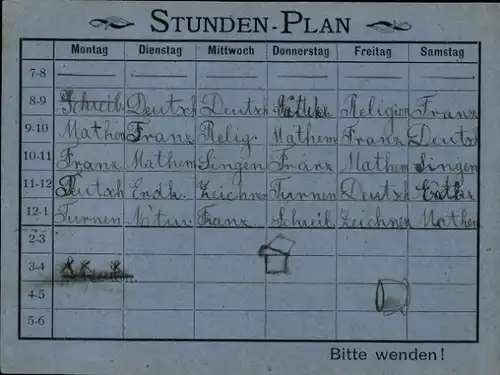 STUNDEN-PLAN
Montag Dienstag Mittwoch Donnerstag Freitag Samstag
7-8
8-9 Schreib. Deutsch Deutsch Religion Franz
9-10 Mathem Franz. Relig. Mathem Franz. Deutsch
10-11 Franz. Mathem Singen Franz Mathem Singen
11-12 Deutsch Erdk. Zeichnen Turnen Deutsch
12-1 Turnen Natur. Franz. Schreib. Zeichnen Mathem
2-3
3-4
4-5
5-6
Bitte wenden!